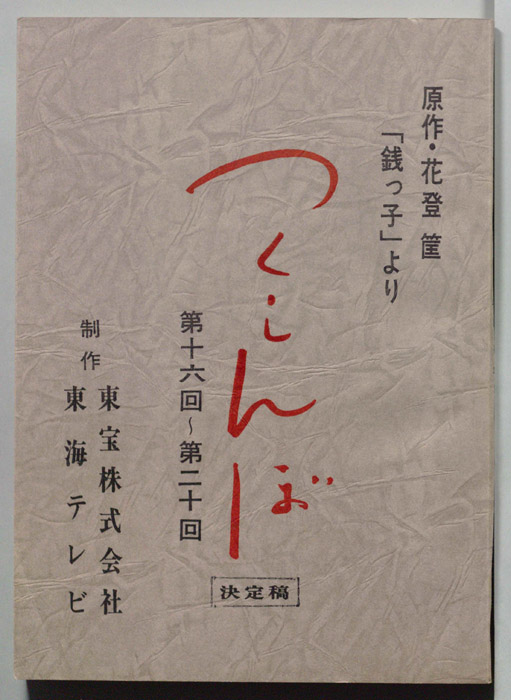 原作・花登 筐
「銭っ子」より
つくしんぼ
第十六回～第二十回
決定稿
制作
東宝株式会社
東海テレビ